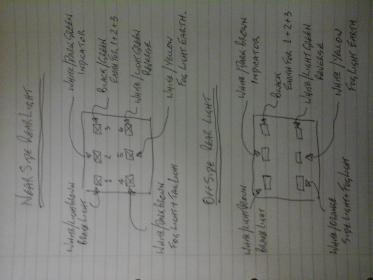 Near Side Rear Light
White/Dark Green
Indicator
Black/Green
Earth for 1+2+3
White/Light Green
Reverse
White/Yellow
Fog Light Earth
White/Light Brown
Brake Light
White/Dark Brown
Fog Light + Tail Light
1
2
3
4
5
6
Off Side Rear Light
White/Dark Brown
Indicator
Black
Earth for 1+2+3
White/Light Green
Reverse
White/Yellow
Fog Light Earth
White/Light Brown
Brake Light
White/Orange
Side Light + Fog Light